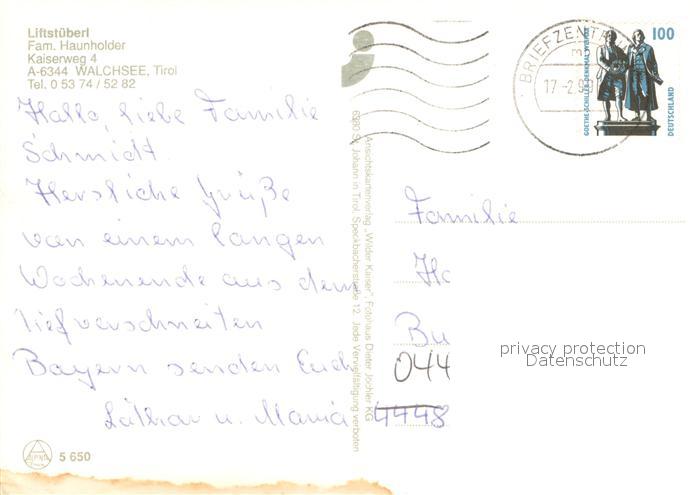 Liftstüberl
Fam. Haunholder
Kaiserweg 4
A-6344 WALCHSEE, Tirol
Tel. 0 53 74 / 52 82
Hallo, liebe Familie
Schmidt.
Herzliche Grüße
von einem langen
Wochenende aus dem
tiefverschneiten
Bayern senden Euch
Lothar u. Maria
5 650
Ansichtskartenverlag „Wilder Kaiser“, Fotohaus Dieter Jöchler KG
6380 St. Johann in Tirol, Speckbacherstraße 12. Jede Vervielfältigung verboten
BRIEFZENTR
17.-2.
GOETHE-SCHILLER-DENKMAL WEIMAR
100
DEUTSCHLAND
Familie
Ha
Bu
044
4448
privacy protection
Datenschutz